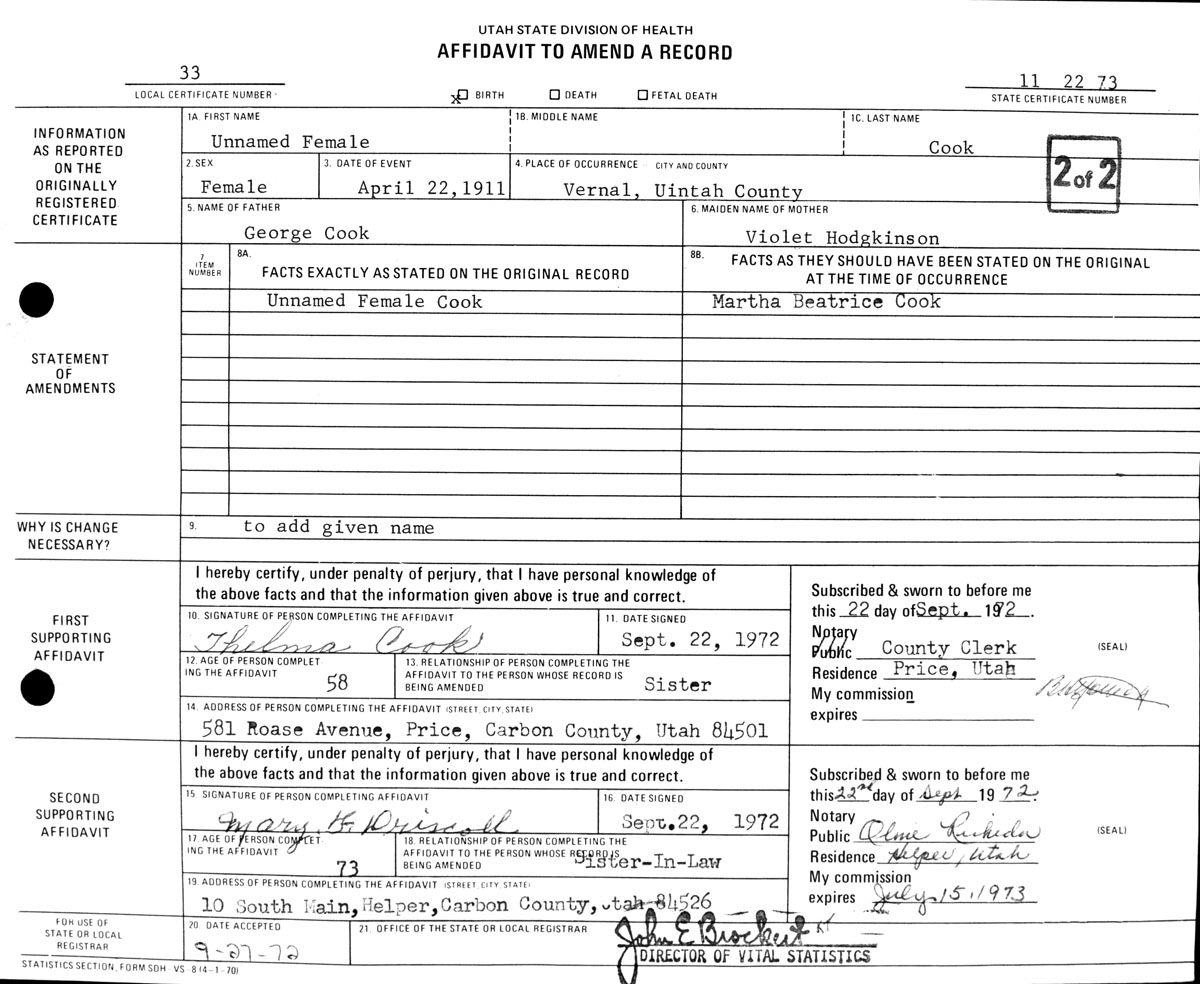 UTAH STATE DIVISION OF HEALTH
AFFIDAVIT TO AMEND A RECORD
33
LOCAL CERTIFICATE NUMBER
x BIRTH
DEATH
FETAL DEATH
11 22 73
STATE CERTIFICATE NUMBER
INFORMATION
AS REPORTED
ON THE
ORIGINALLY
REGISTERED
CERTIFICATE
1A. FIRST NAME
Unnamed Female
1B. MIDDLE NAME
1C. LAST NAME
Cook
2 of 2
2. SEX
Female
3. DATE OF EVENT
April 22,1911
4. PLACE OF OCCURRENCE CITY AND COUNTY
Vernal, Uintah County
5. NAME OF FATHER
George Cook
6. MAIDEN NAME OF MOTHER
Violet Hodgkinson
STATEMENT
OF
AMENDMENTS
7
ITEM
NUMBER
8A.
FACTS EXACTLY AS STATED ON THE ORIGINAL RECORD
8B.
FACTS AS THEY SHOULD HAVE BEEN STATED ON THE ORIGINAL
AT THE TIME OF OCCURRENCE
Unnamed Female Cook
Martha Beatrice Cook
WHY IS CHANGE
NECESSARY?
9.
to add given name
FIRST
SUPPORTING
AFFIDAVIT
I hereby certify, under penalty of perjury, that I have personal knowledge of
the above facts and that the information given above is true and correct.
10. SIGNATURE OF PERSON COMPLETING THE AFFIDAVIT
Thelma Cook
11. DATE SIGNED
Sept. 22, 1972
12. AGE OF PERSON COMPLET-
ING THE AFFIDAVIT
58
13. RELATIONSHIP OF PERSON COMPLETING THE
AFFIDAVIT TO THE PERSON WHOSE RECORD IS
BEING AMENDED
Sister
14. ADDRESS OF PERSON COMPLETING THE AFFIDAVIT (STREET, CITY, STATE)
581 Roase Avenue, Price, Carbon County, Utah 84501
Subscribed & sworn to before me
this 22 day of Sept. 1972.
Notary
Public County Clerk
(SEAL)
Residence Price, Utah
My commission
expires
SECOND
SUPPORTING
AFFIDAVIT
I hereby certify, under penalty of perjury, that I have personal knowledge of
the above facts and that the information given above is true and correct.
15. SIGNATURE OF PERSON COMPLETING AFFIDAVIT
Mary H Driscoll
16. DATE SIGNED
Sept.22, 1972
17. AGE OF PERSON COMPLET-
ING THE AFFIDAVIT
73
18. RELATIONSHIP OF PERSON COMPLETING THE
AFFIDAVIT TO THE PERSON WHOSE RECORD IS
BEING AMENDED
Sister-In-Law
19. ADDRESS OF PERSON COMPLETING THE AFFIDAVIT (STREET, CITY, STATE)
10 South Main, Helper, Carbon County, Utah 84526
Subscribed & sworn to before me
this 22nd day of Sept 1972.
Notary
Public
(SEAL)
Residence Helper, Utah
My commission
expires July 15, 1973
FOR USE OF
STATE OR LOCAL
REGISTRAR
20. DATE ACCEPTED
9-27-72
21. OFFICE OF THE STATE OR LOCAL REGISTRAR
John E Brockert
DIRECTOR OF VITAL STATISTICS
STATISTICS SECTION, FORM SDH - VS - 8 (4-1-70)